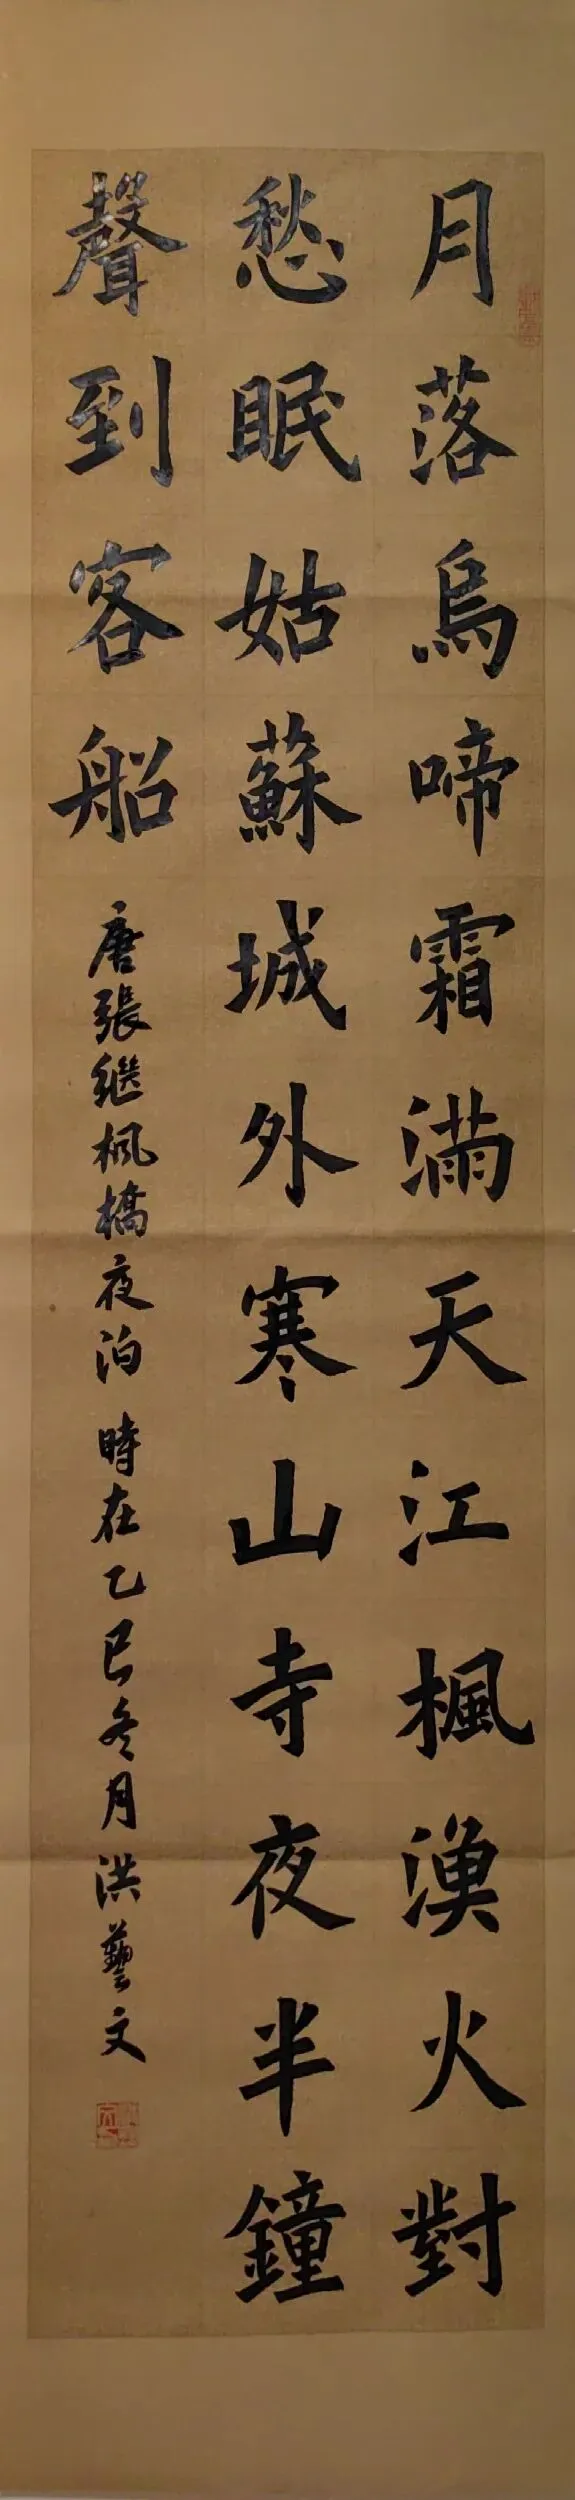 月落烏啼霜滿天江楓漁火對
愁眠姑蘇城外寒山寺夜半鐘
聲到客船
唐張继楓橋夜泊 時在乙巳冬月洪藝文